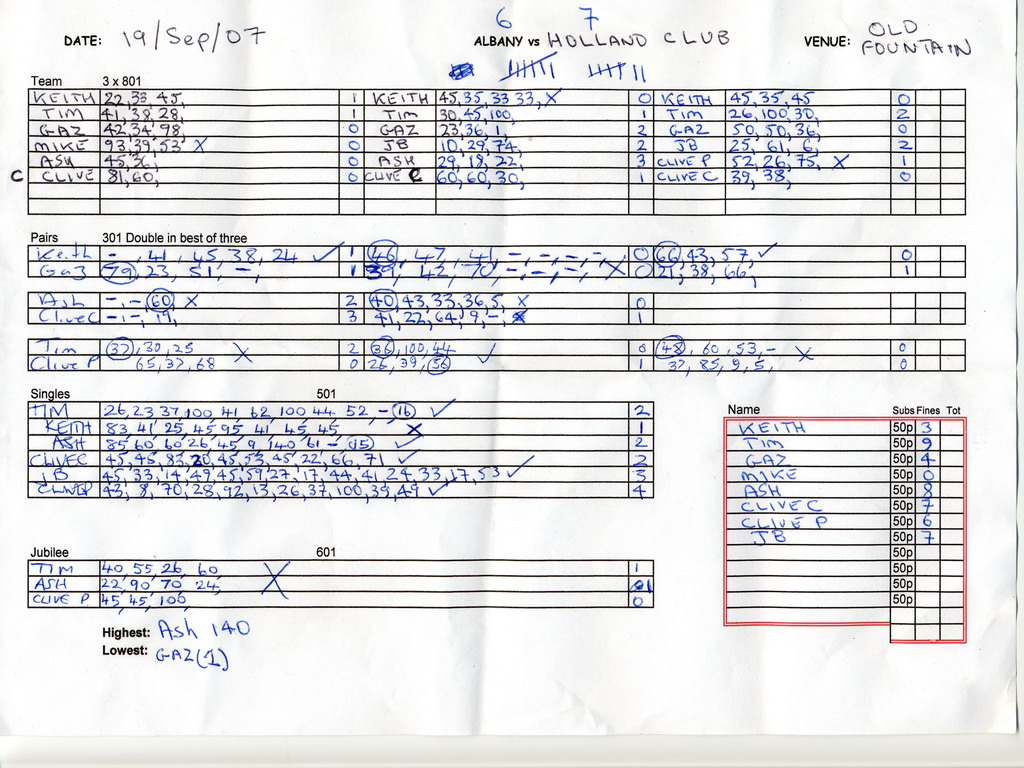 6 7
DATE: 19/Sep/07 ALBANY vs HOLLAND CLUB VENUE: OLD FOUNTAIN
Team 3 x 801
KEITH 22, 33, 45, 1 KEITH 45, 35, 33 33, X 0 KEITH 45, 35, 45 0
TIM 41, 38, 28, 1 TIM 30, 45, 100, 1 TIM 26, 100, 30, 2
GAZ 42, 34, 98, 0 GAZ 23, 36, 1, 2 GAZ 50, 50, 36, 0
MIKE 93, 39, 53 X 0 JB 10, 29, 74, 2 JB 25, 61, 6, 2
ASH 45, 36, 0 ASH 29, 18, 22, 3 CLIVE P 52, 26, 75, X 1
C CLIVE 81, 60, 0 CLIVE C 60, 60, 30, 1 CLIVE C 39, 38, 0
Pairs 301 Double in best of three
Keith -, 41, 45, 38, 24 ✓ 1 46, 47, 41, -, -, -, 0 66, 43, 57, ✓ 0
Gaz 79, 23, 51, -, 1 39, 42, 70, -, -, -, X 0 21, 38, 66, 1
Ash -, -, 60, X 2 40, 43, 33, 36, 5, X 0
Clive C -, -, 19, 3 41, 22, 64, 9, -, 1
Tim 37, 30, 25 X 2 36, 100, 44 ✓ 0 48, 60, 53, - X 0
Clive P 65, 37, 68 0 26, 39, 56 1 37, 85, 9, 5, 0
Singles 501
TIM 26, 23 37, 100, 41, 62, 100 44, 52, - 16 ✓ 2
KEITH 83, 41, 25, 45, 95, 41, 45, 45 X 1
ASH 85, 60, 60, 26, 45, 9, 140, 61 - 15 ✓ 2
CLIVE C 45, 45, 83, 20, 45, 53, 45, 22, 66, 71 ✓ 2
JB 45, 33, 14, 49, 45, 59, 27, 17, 44, 41, 24, 33, 17, 53 ✓ 3
CLIVE P 43, 8, 70, 28, 92, 13, 26, 37, 100, 39, 49 ✓ 4
Name Subs Fines Tot
KEITH 50p 3
TIM 50p 9
GAZ 50p 4
MIKE 50p 0
ASH 50p 8
CLIVE C 50p 7
CLIVE P 50p 6
JB 50p 7
50p
50p
50p
50p
Jubilee 601
TIM 40, 55, 26, 60 X 1
ASH 22, 90, 70, 24, 1
CLIVE P. 45, 45, 100, 0
Highest: Ash 140
Lowest: GAZ (1)